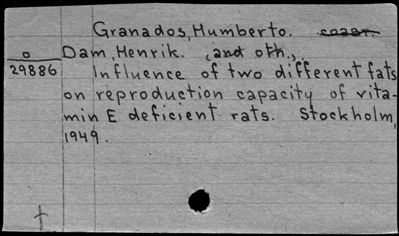 Granados, Humberto. coaut.
O Dam, Henrik. , and oth.,
29886 Influence of two different fats
on reproduction capacity of vita-
min E deficient rats. Stockholm,
1949.